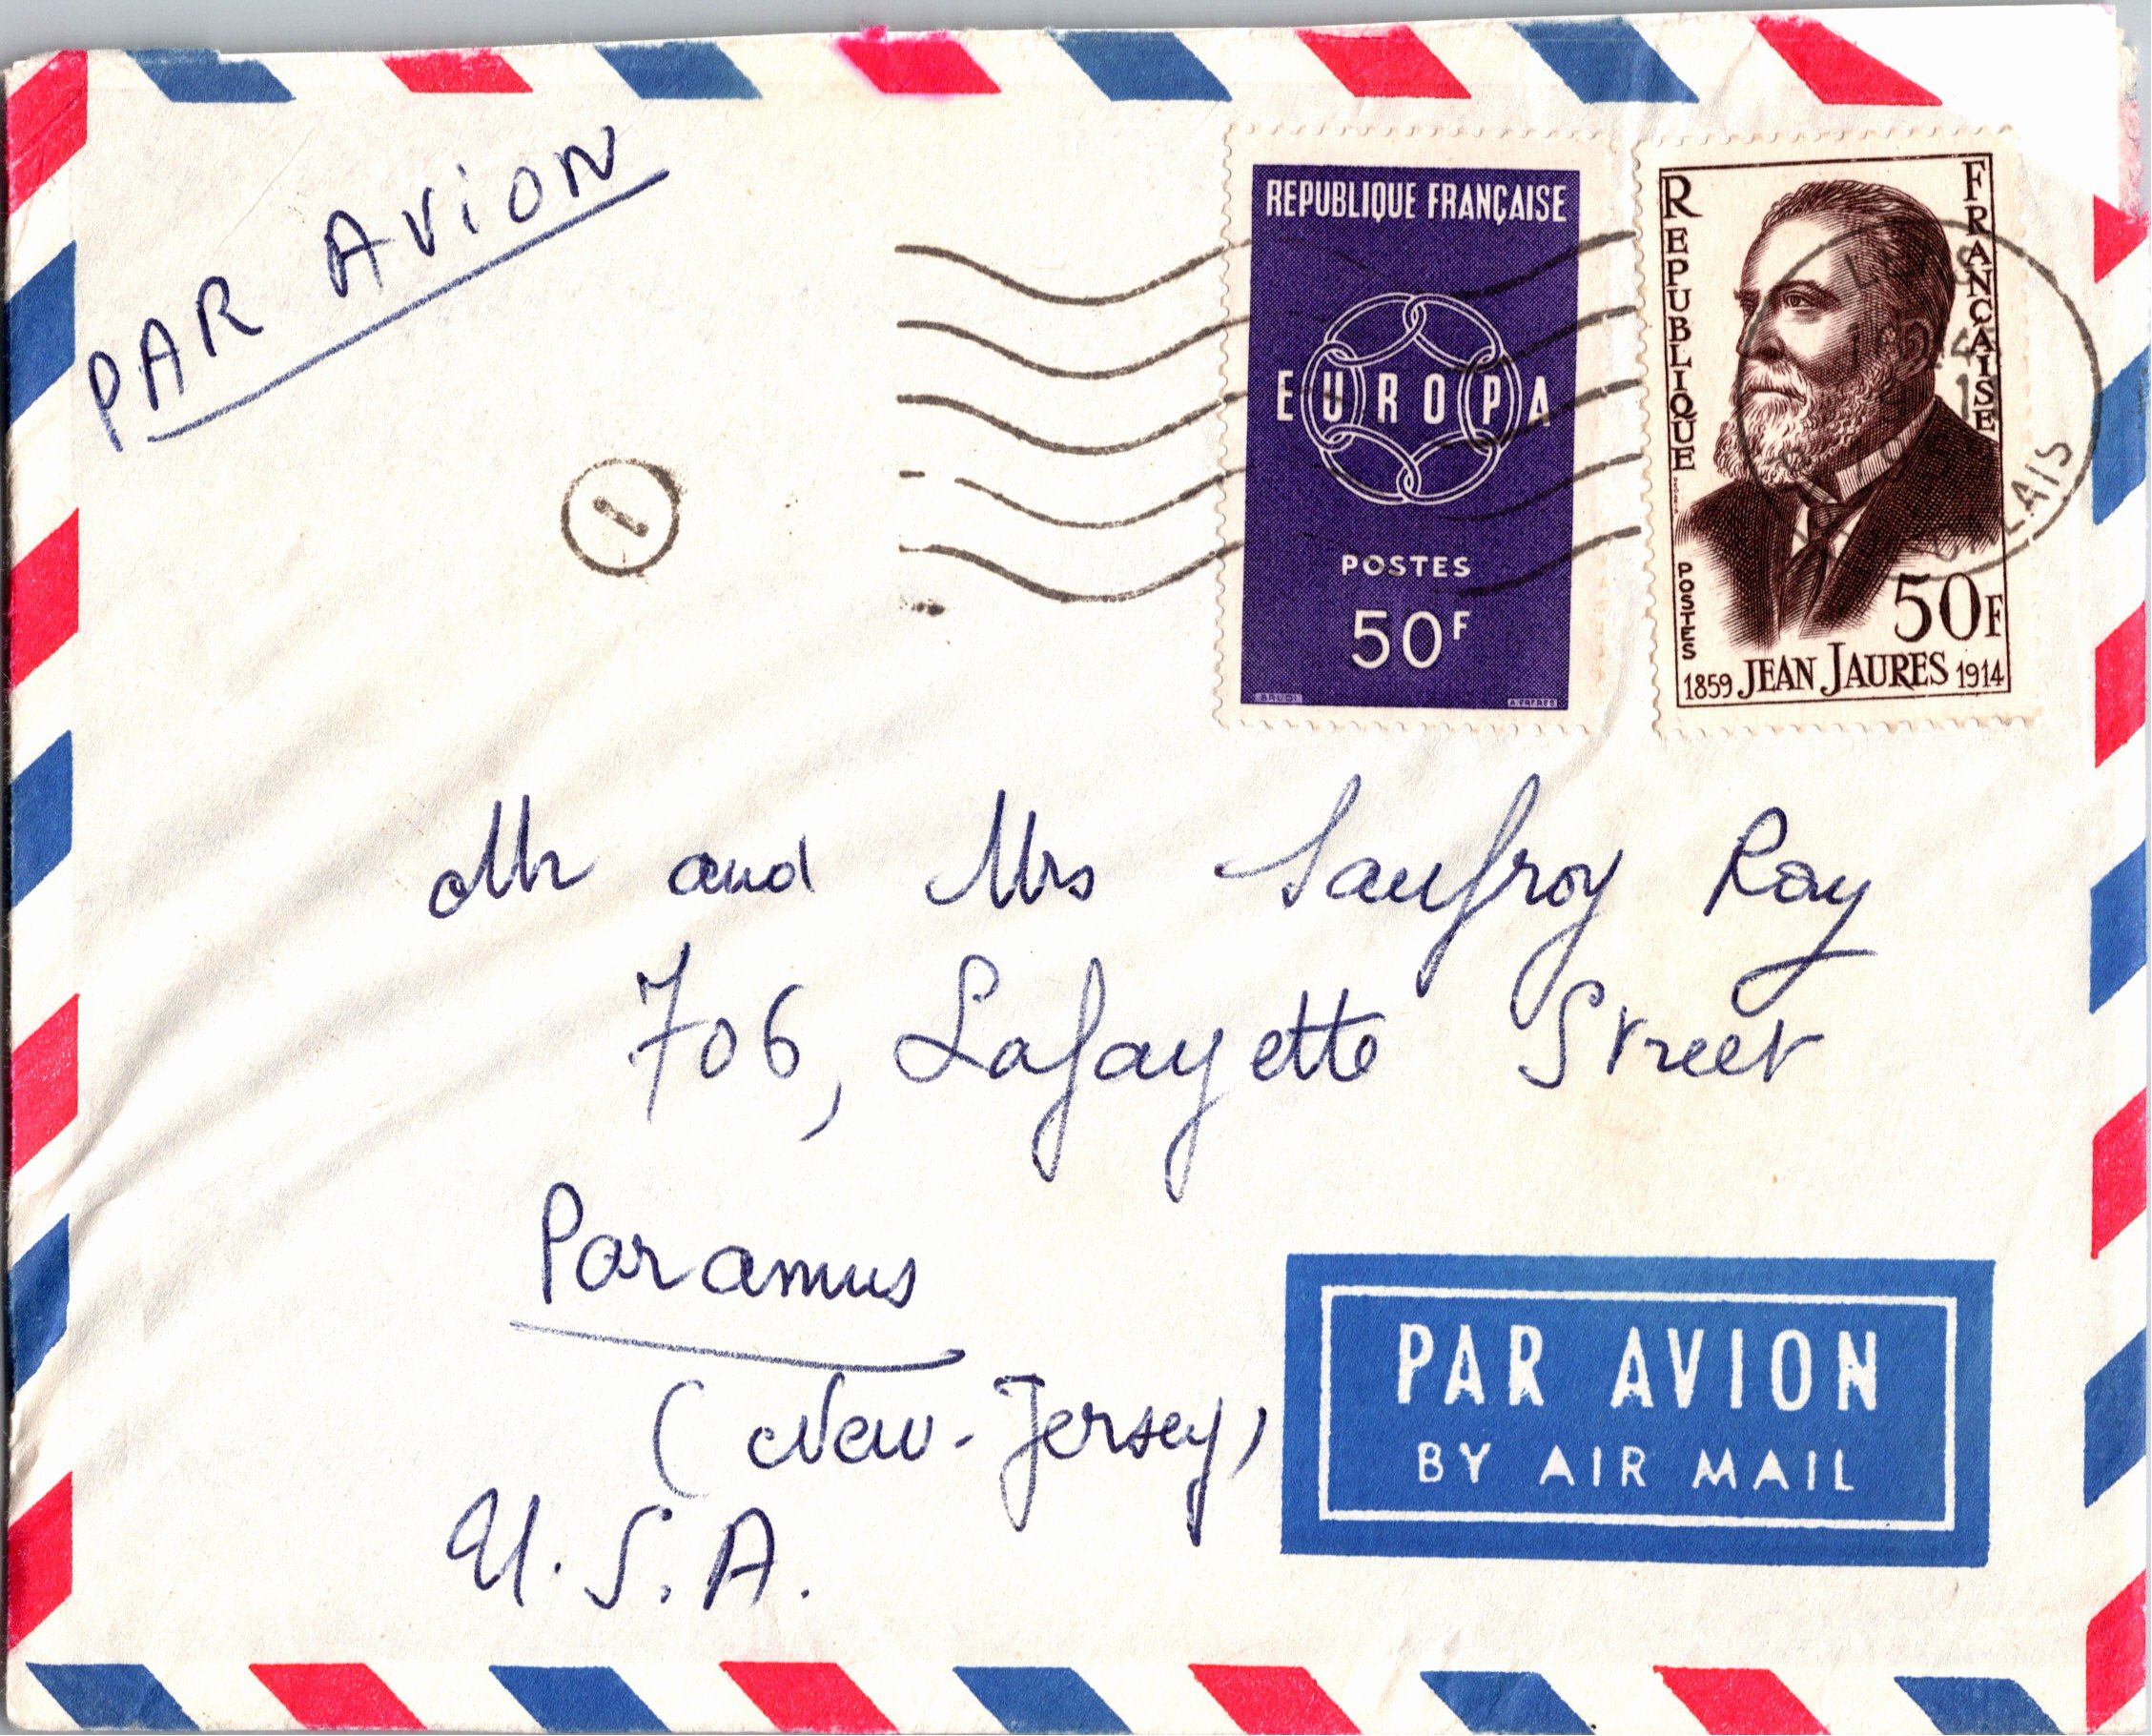 PAR AVION
REPUBLIQUE FRANÇAISE
EUROPA
POSTES
50F
REPUBLIQUE FRANÇAISE
POSTES
50F
1859 JEAN JAURES 1914
LAIS
Mr and Mrs Saufroy Ray
706, Lafayette Street
Paramus
(New-Jersey)
U.S.A.
PAR AVION
BY AIR MAIL